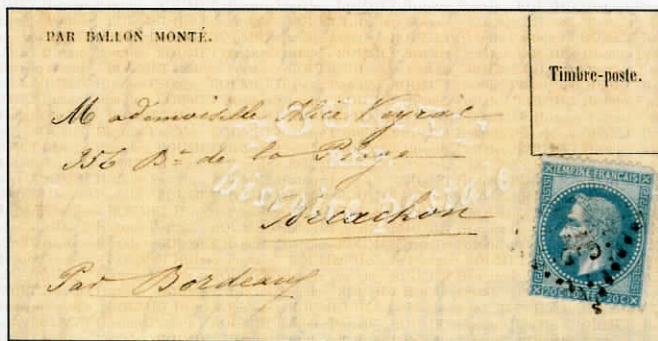 PAR BALLON MONTÉ.
Timbre-poste.
Mademoiselle Alice Veyrac
356 Bd de la Plage
Arcachon
Par Bordeaux
EMPIRE FRANÇAIS
20 C 20 C